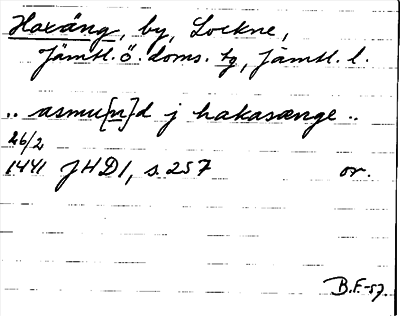 Haxäng, by, Lockne,
Jämtl. ö. doms. tg, Jämtl. l.
.. asmu[n]d j hakasænge ..
26/2
1441 JHD1, s. 257 or.
B.F.-57.